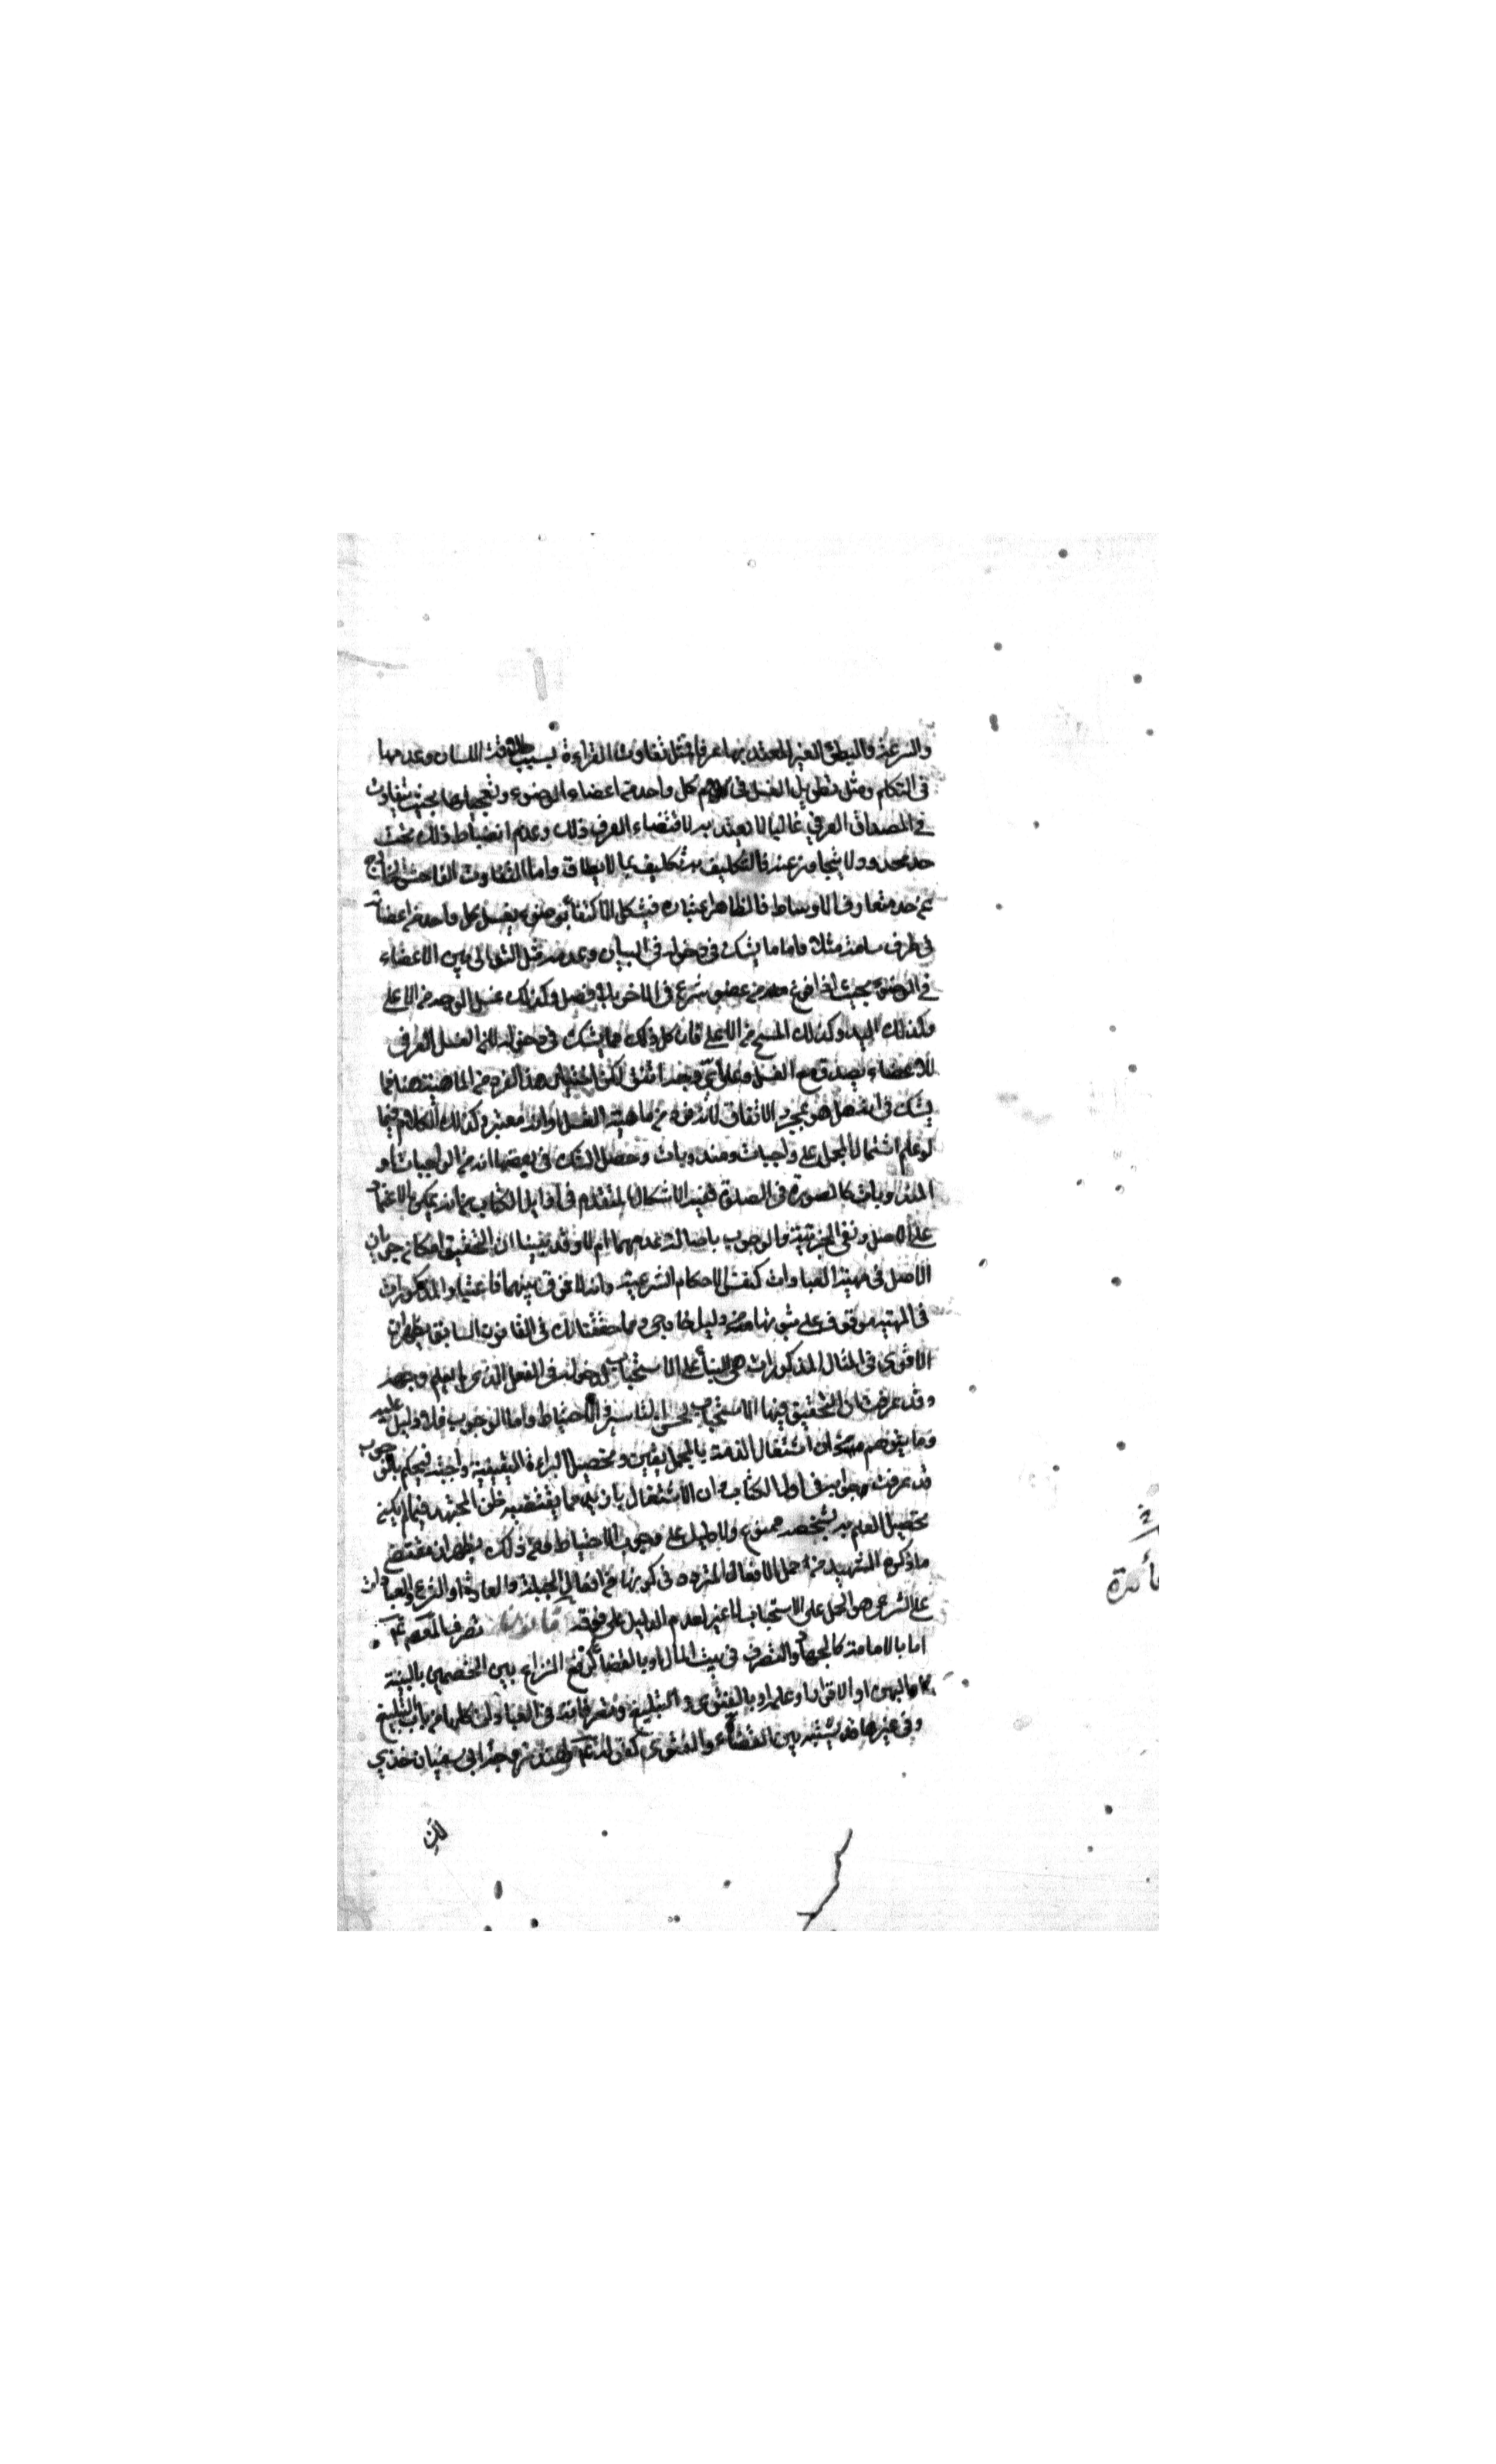 والسرعة والبطئ الغير المعتد بها عرفا مثل تفاوت القراءة بسبب طلاقة اللسان وعدمها
في التكلم ومثل تطويل الغسل في كل واحد من اعضاء الوضوء وتعجيلها بحيث يتفاوت
في المصداق العرفي غالبا لا يعتد به لاقتضاء العرف ذلك وعدم انضباط ذلك تحت
حد محدود ولا يتجاوز عنه فالتكليف به تكليف بما لا يطاق واما التفاوت الفاحش الخارج
عن حد متعارف الاوساط فالظاهر اعتباره فيشكل الاكتفاء بوضوء يغسل كل واحد من اعضائه
في ظرف ساعة مثلا واما ما يشك في دخوله في البيان وعدمه مثل التوالي بين الاعضاء
في الوضوء بحيث اذا فرغ من عضو شرع في الاخر بلا فصل وكذلك غسل الوجه من الاعلى
وكذلك اليد وكذلك المسح من الاعلى فان كل ذلك مما يشك في دخوله لان الغسل العرفي
للاعضاء يصدق مع الغسل وعلى اي وجه اتفق لكن اختيار هذا الفرد من الماهية هنا مما
يشك في انه هل هو بمجرد الاتفاق لانه فرد من ماهية الغسل او انه معتبر وكذلك الكلام فيما
لو علم اشتمال المجمل على واجبات ومندوبات وحصل الشك في بعضها انه من الواجبات او
المندوبات كالسورة في الصلوة ففيه الاشكال المتقدم في اوايل الكتاب من انه يمكن الاعتماد
على الاصل ونفي الجزئية والوجوب باصالة عدمهما ام لا وقد بينا ان التحقيق امكان جريان
الاصل في مهية العبادات كنفس الاحكام الشرعية وانه لا فرق بينهما فاعتبار المذكورات
في المهية موقوف على ثبوتها من دليل خارجي ومما حققنا لك في القانون السابق يظهر ان
الاقوى في المثال المذكورات هي البناء على الاستحباب لدخوله في الفعل الذي لم يعلم وجهه
وقد عرفت ان التحقيق فيها الاستحباب لحسن التاسي والاحتياط واما الوجوب فلا دليل عليه
وما يتوهم من ان اشتغال الذمة بالمجمل يقين وتحصيل البراءة اليقينية واجب فيحكم بالوجوب
قد عرفت جوابه في اوايل الكتاب وان الاشتغال بازيد مما يقتضيه ظن المجتهد فيما لم يمكنه
تحصيل العلم به بشخصه ممنوع ولا دليل على وجوب الاحتياط ومن ذلك يظهر ان مقتضى
ما ذكره الشهيد من حمل الافعال المتردد في كونها من افعال الجبلة والعادة او الشرع والعبادات
على الشرعي هو الحمل على الاستحباب لا غير لعدم الدليل على فوقه قانون تصرف المعصوم ع
اما بالامامة كالجهاد والتصرف في بيت المال او بالقضاء كرفع النزاع بين الخصمين بالبينة
او اليمين او الاقرار او علم او بالفتوى والتبليغ وتصرفاته في العبادات كلها من باب التبليغ
وفي غيرها قد يشتبه بين القضاء والفتوى كقوله ع لهند زوجة ابي سفيان خذي
لك